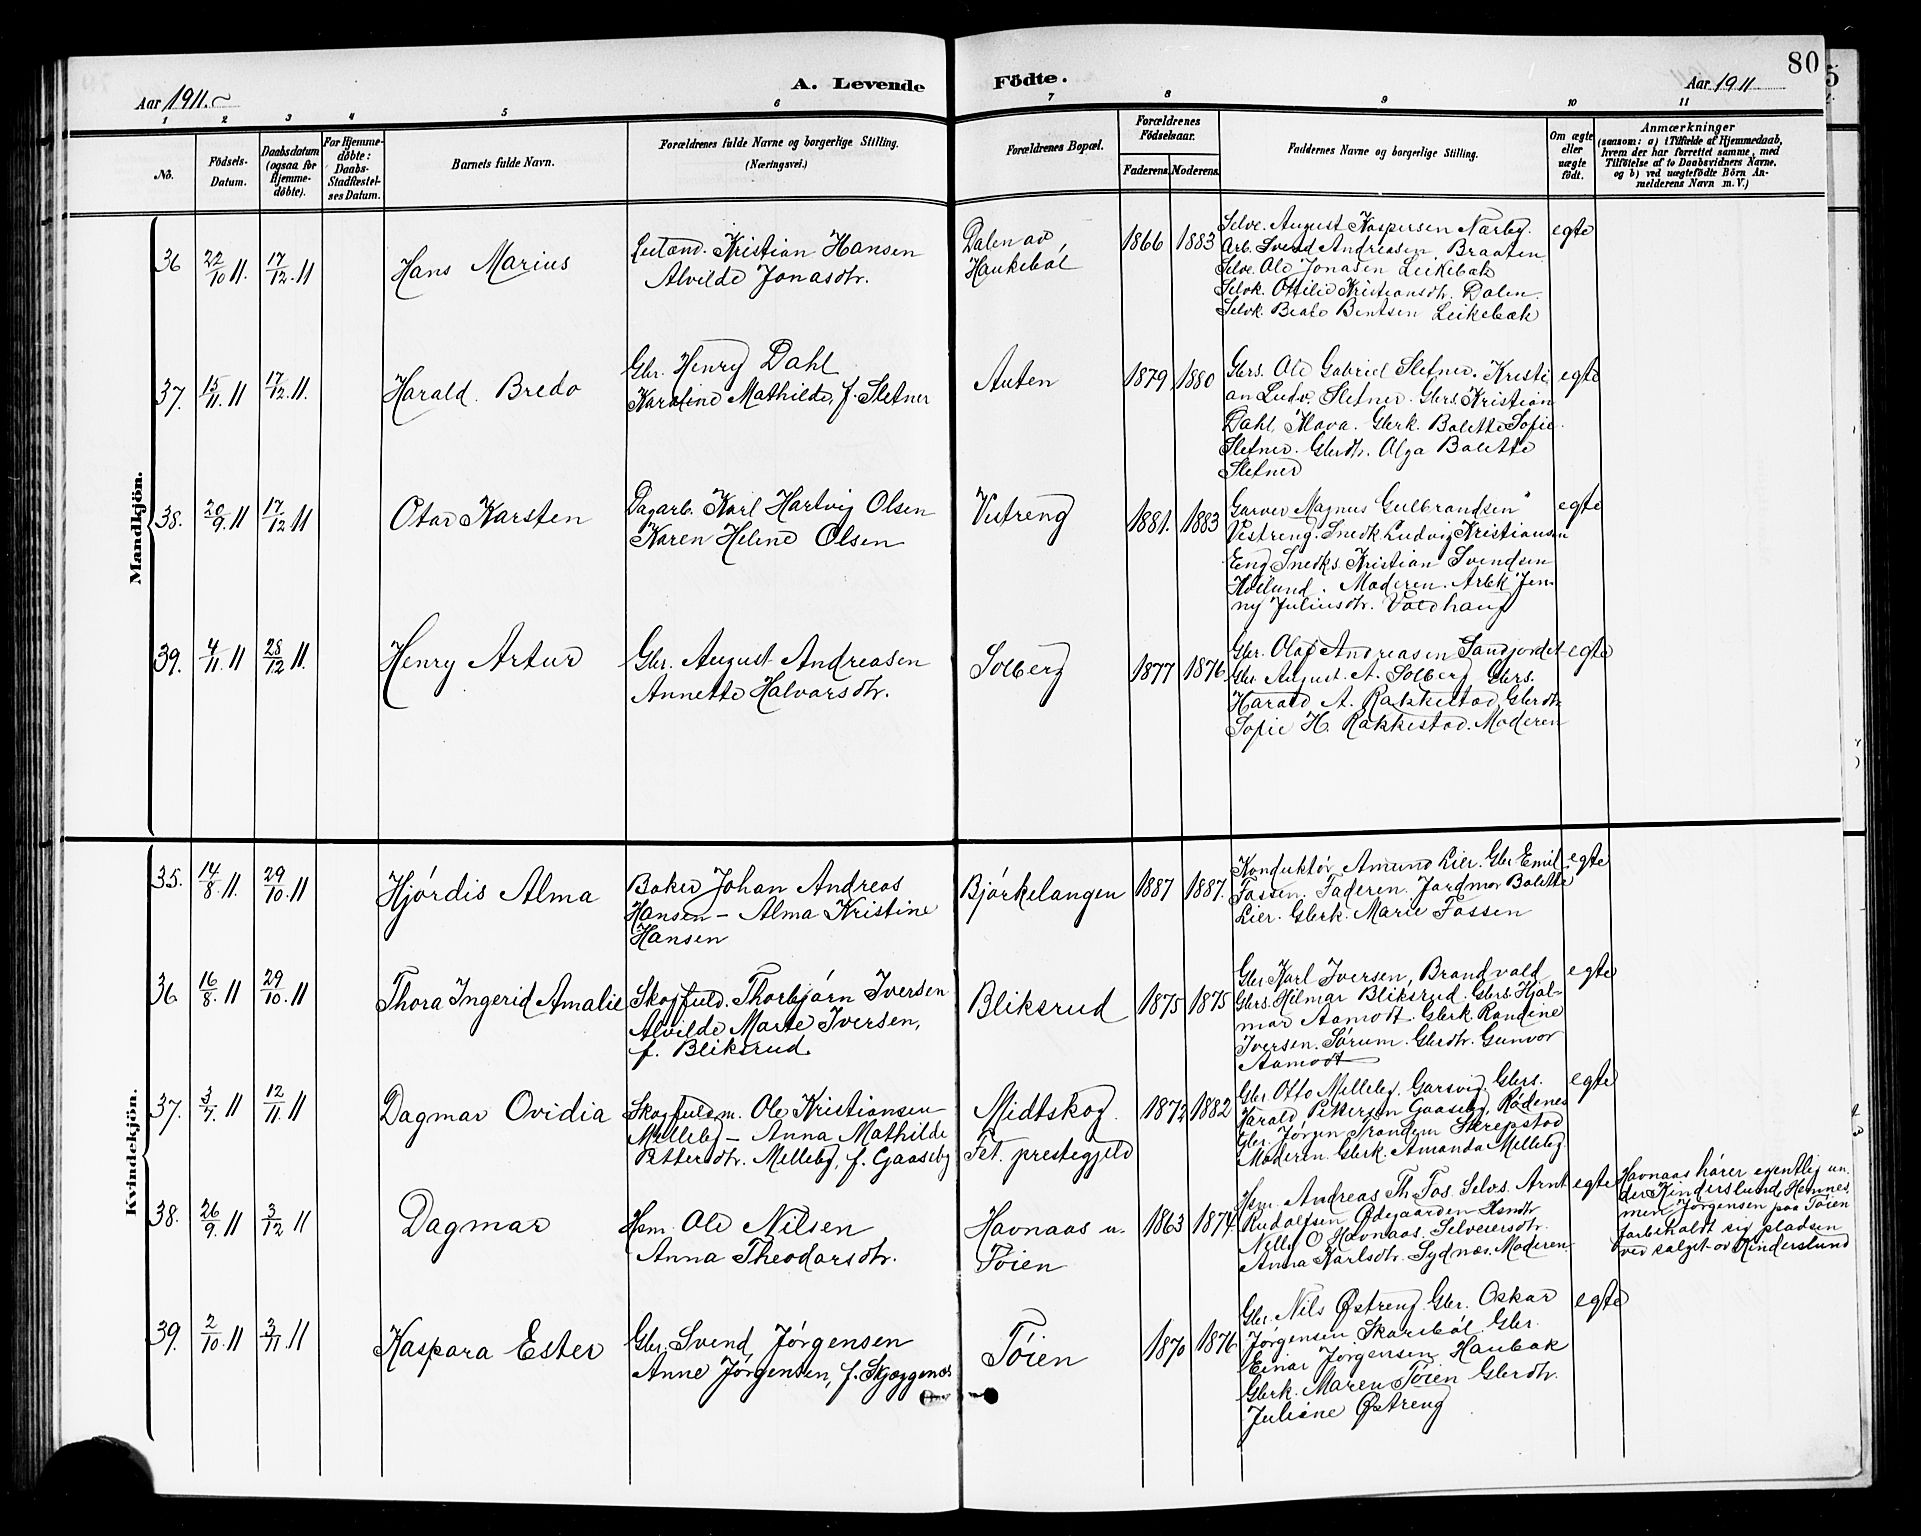 80
Aar 1911.
A. Levende
Födte.
Aar 1911
1 2 3 4 5 6 7 8 9 10 11
No.
Födsels-
Datum.
Daabsdatum
(ogsaa for
Hjemme-
döbte).
For Hjemme-
döbte:
Daabs-
Stadfæstel-
ses Datum.
Barnets fulde Navn.
Forældrenes fulde Navne og borgerlige Stilling.
(Næringsvei.)
Forældrenes Bopæl.
Forældrenes
Födselsaar.
Faderens.
Moderens.
Faddernes Navne og borgerlige Stilling.
Om ægte
eller
uægte
født.
Anmærkninger
(saasom: a) i Tilfælde af Hjemmedaab,
hvem der har forrettet samme, med
Tilföielse af to Daabsvidners Navne.
og b) ved uægtefödte Börn An-
melderens Navn m. V.)
Mandkjön.
36 22/10 11. 17/12. 11
Hans Marius
Kristian Hansen
Alvilde Jonasdtr.
Dalen av
Haukebøl
1866 1883
Selve. August Kaspersen Nærby.
Arb. Svend Andreasen Braaten
Selve. Ole Jonasen Leikebæk
Selvk. Ottilie Kristiansdtr. Dalen.
Selvk. Beate Bentsen Leikebæk
egte
37. 15/11. 11 17/12. 11.
Harald Bredo
Gbr. Henry Dahl
Karoline Mathilde, f. Sletner
Auten
1879 1880
Gbrs. Ole Gabriel Sletner. Kristi
an Ludv. Sletner. Gbrs. Kristian
Dahl Kløva. Gbrk. Bolette Sofie
Sletner. Gbrdtr. Olga Bolette
Sletner
egte
38. 20/9. 11 17/12 11
Otar Karsten
Dagarb. Karl Hartvig Olsen
Karen Helene Olsen
Vestreng
1881. 1883
Garver Magnus Gulbrandsen
Vestreng. Snedk. Ludvig Kristiansen
Eng Snedks. Kristian Svendsen
Høilund. Moderen. Arbk Jen-
ny Juliusdtr. Voldhaug
egte
39. 4/11. 11 28/12 11.
Henry Artur
Gbr. August Andreasen
Annette Halvorsdtr.
Solberg
1877 1876
Gbr. Olaf Andreasen Sandjordet
Gbr. August A. Solberg Gbrs.
Harald A. Rakkestad Gbrdtr
Sofie H. Rakkestad. Moderen
egte
Kvindekjön.
35. 14/8. 11. 29/10. 11
Hjórdis Alma
Baker Johan Andreas
Hansen - Alma Kristine
Hansen
Bjórkelangen
1887 1887.
Konduktør Amund Lier. Gbr Emil
Fossen. Faderen. Jordmor Bolette
Lier. Gbrk. Marie Fossen
egte
36 16/8. 11 29/10. 11
Thora Ingerid Amalie
Skogfuld. Thorbjørn Iversen
Alvilde Marie Iversen,
f. Bliksrud.
Bliksrud
1875 1875
Gbr Karl Iversen, Brandvold
Gbrs. Hilmar Bliksrud. Gbrs. Hjal-
mar Aamodt. Gbrk. Randine
Iversen. Sørum. Gbrdtr. Gunvor
Aamodt
egte
37. 3/7. 11 12/11. 11
Dagmar Ovidia
Skogfuldm. Ole Kristiansen
Melleby - Anna Mathilde
Pettersdtr. Melleby, f. Gaaseby
Midtskog.
Fet. prestegjeld
1872 1882
Gbr Otto Melleby. Garsvig. Gbrs.
Harald Pettersen Gaaseby, Rødenes
Gbr. Jørgen Trandem Skrepstad
Moderen. Gbrk. Amanda Melleby.
egte
38. 26/9. 11 3/12 11
Dagmar
Hsm. Ole Nilsen
Anna Theodorsdtr.
Havnaas u.
Tøien
1863 1874
Hsm. Andreas Th. Fos. Selvs. Arnt
Rudolfsen Ødegaarden Hsmdtr
Nelly O Havnaas. Selveiersdtr.
Anna Karlsdtr. Sydnæs. Moderen
egte
Havnaas hører egentlig un-
der Kinderslund, Hemnes,
men Jørgensen paa Tøien
forbeholdt sig pladsen
ved salget av Kinderslund
39. 2/10. 11 3/11. 11
Kaspara Ester
Gbr. Svend Jørgensen
Anne Jørgensen, f. Skjæggenes
Tøien
1870 1876
Gbr. Nils Østreng. Gbr. Oskar
Jørgensen Skarsbøl. Gbr.
Einar Jørgensen Haubak
Gbrk. Maren Tøien Gbrdtr.
Juliane Østreng
egte